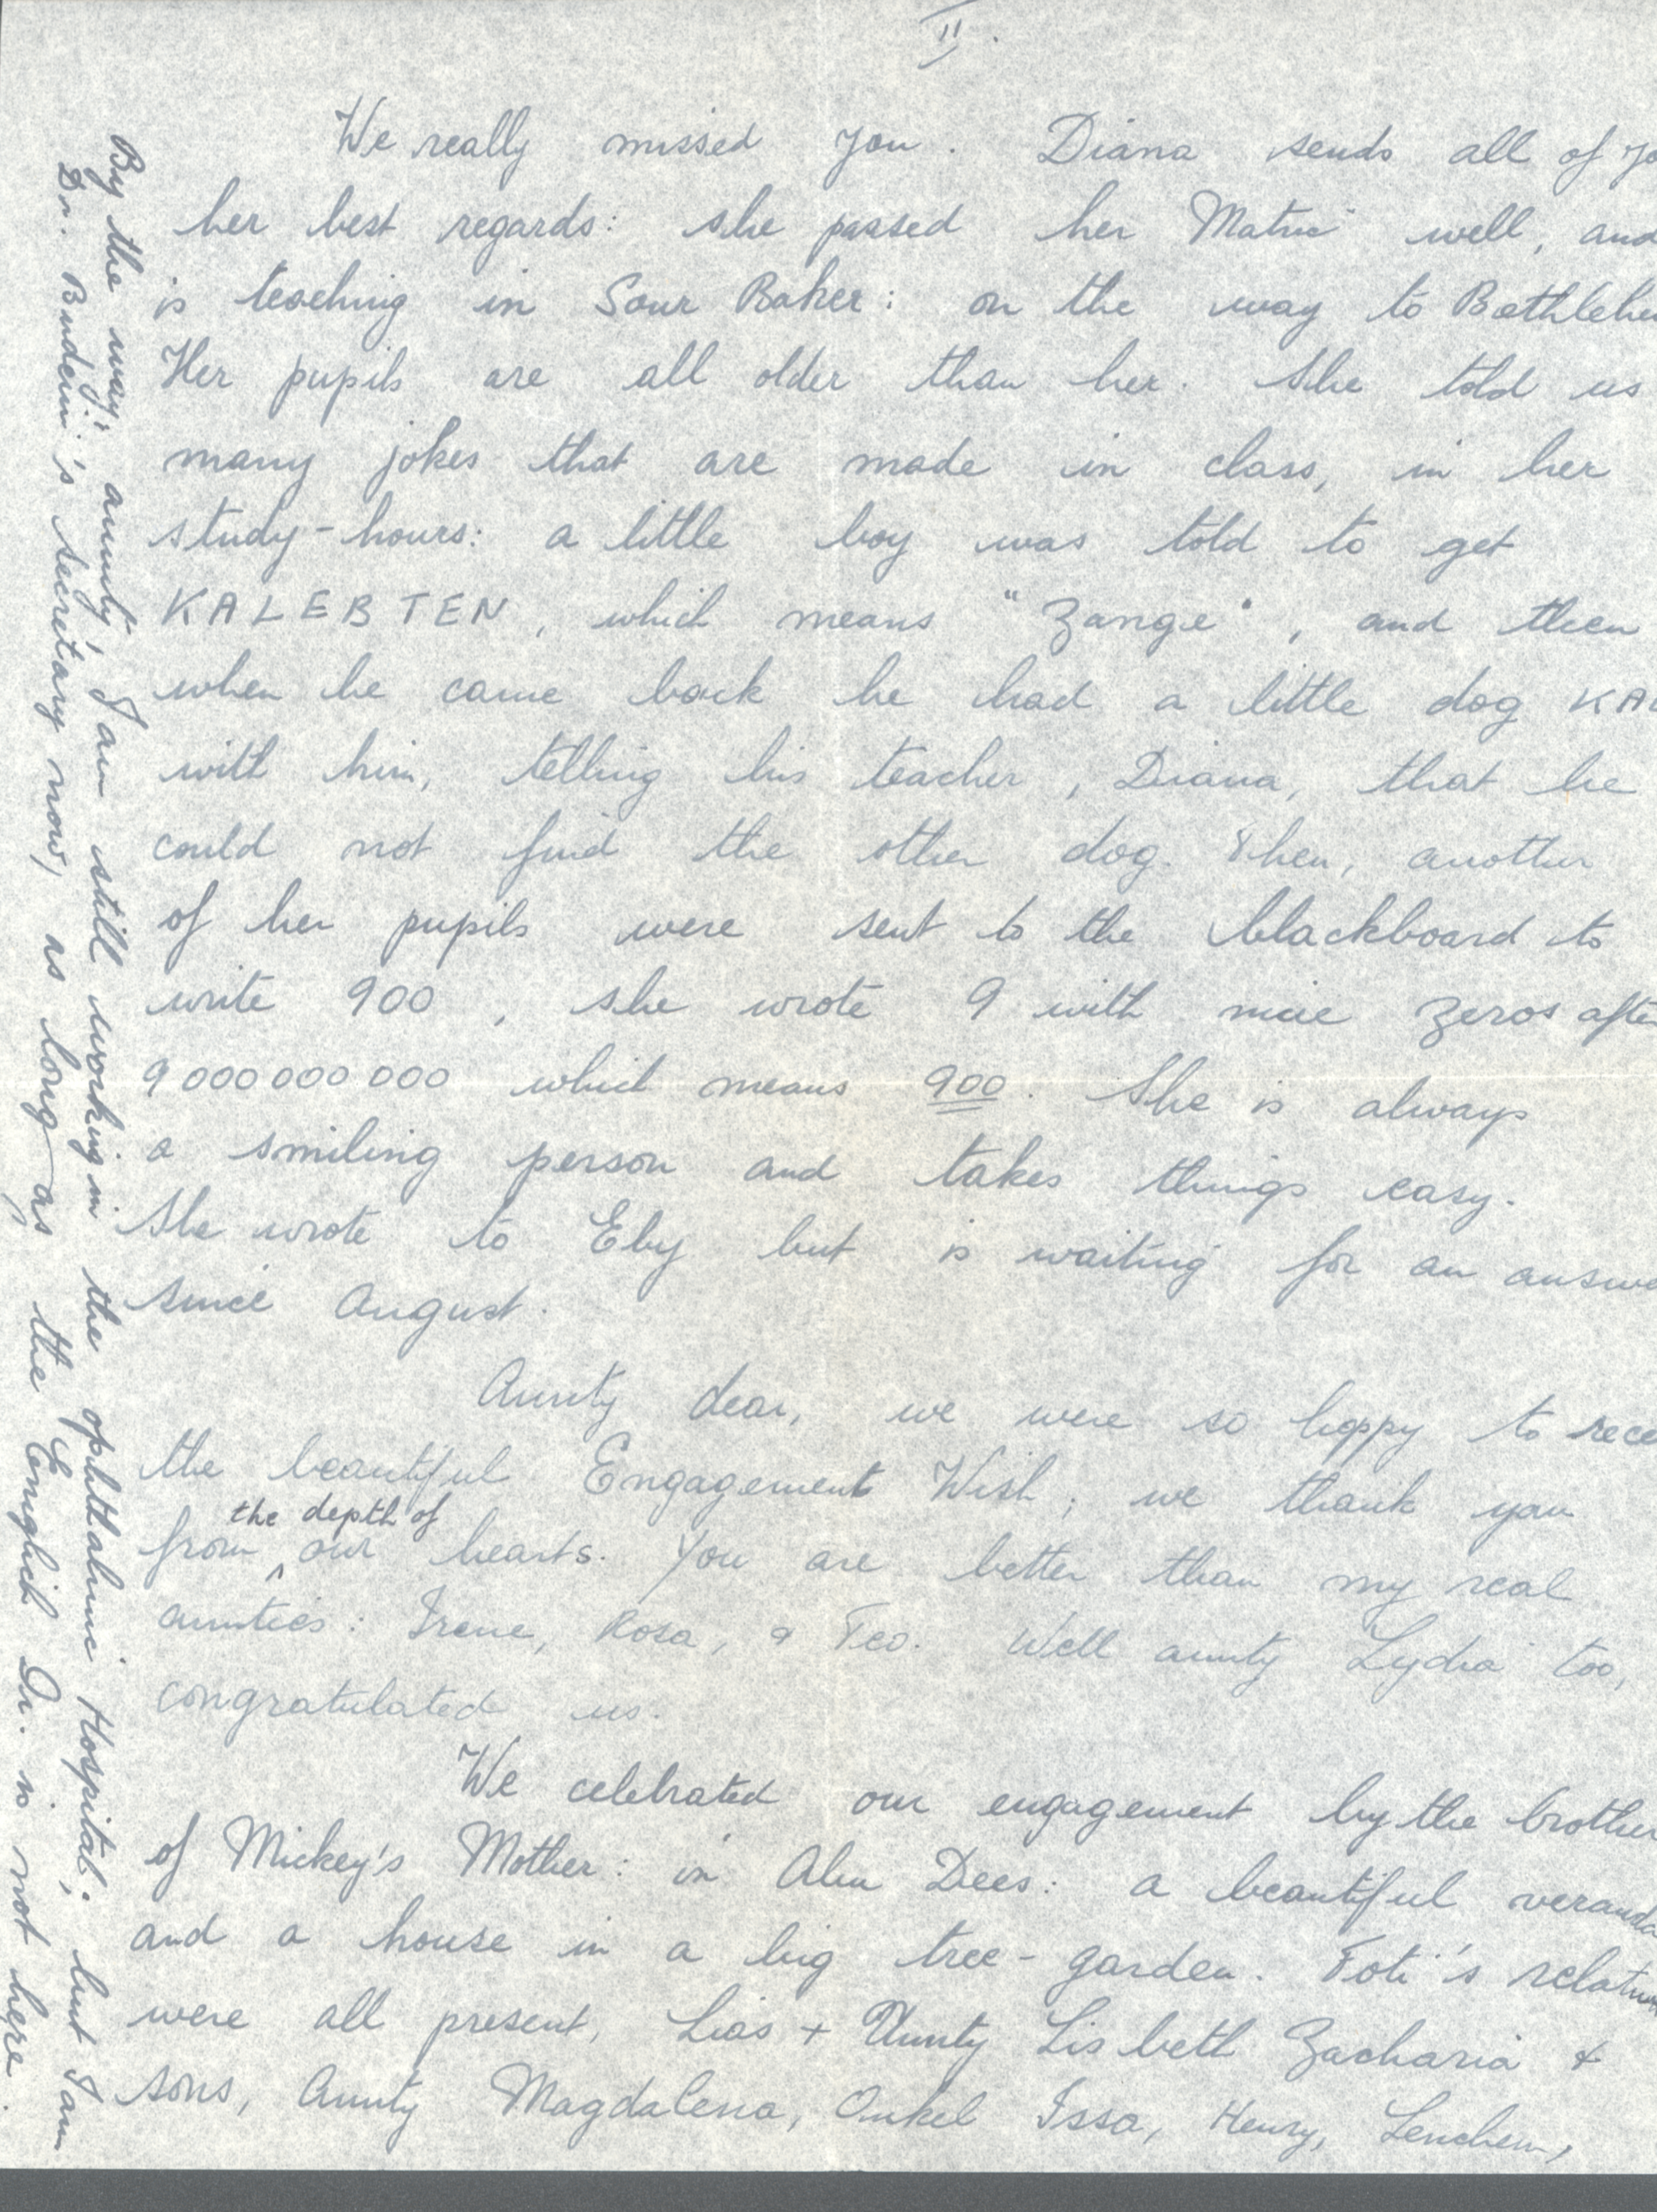 II.
We really missed you. Diana sends all of yo
her best regards: she passed her Matric well, and
is teaching in Sour Baher: on the way to Bethlehe
Her pupils are all older than her. She told us
many jokes that are made in class, in her
study-hours: a little boy was told to get
KALEBTEN, which means "Zange", and then
when he came back he had a little dog KAL
with him, telling his teacher, Diana, that he
could not find the other dog. Then, another
of her pupils were sent to the blackboard to
write 900, she wrote 9 with nine zeros afte
9 000 000 000 which means 900. She is always
a smiling person and takes things easy.
She wrote to Eby but is waiting for an answe
since August.
Aunty dear, we were so happy to rece
the beautiful Engagement Wish; we thank you
from the depth of our hearts. You are better than my real
aunties: Irene, Rosa, & Teo. Well aunty Lydia too,
congratulated us.
We celebrated our engagement by the brother
of Mickey's Mother: in Abu Dees: a beautiful veranda
and a house in a big tree-garden. Foti's relativ
were all present, Lias + Aunty Lisbeth Zacharia +
sons, Aunty Magdalena, Onkel Issa, Henry, Lenchen,
By the way, aunty, I am still working in the ophthalmic Hospital; but I am
Dr. Budein's secretary now, as long as the English Dr. is not here.